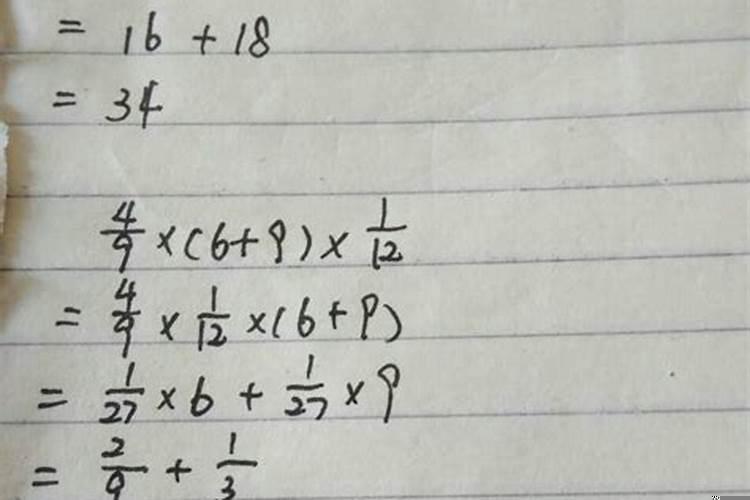 = 16 + 18
= 34
4/9 × (6+9) × 1/12
= 4/9 × 1/12 × (6+9)
= 1/27 × 6 + 1/27 × 9
= 2/9 + 1/3